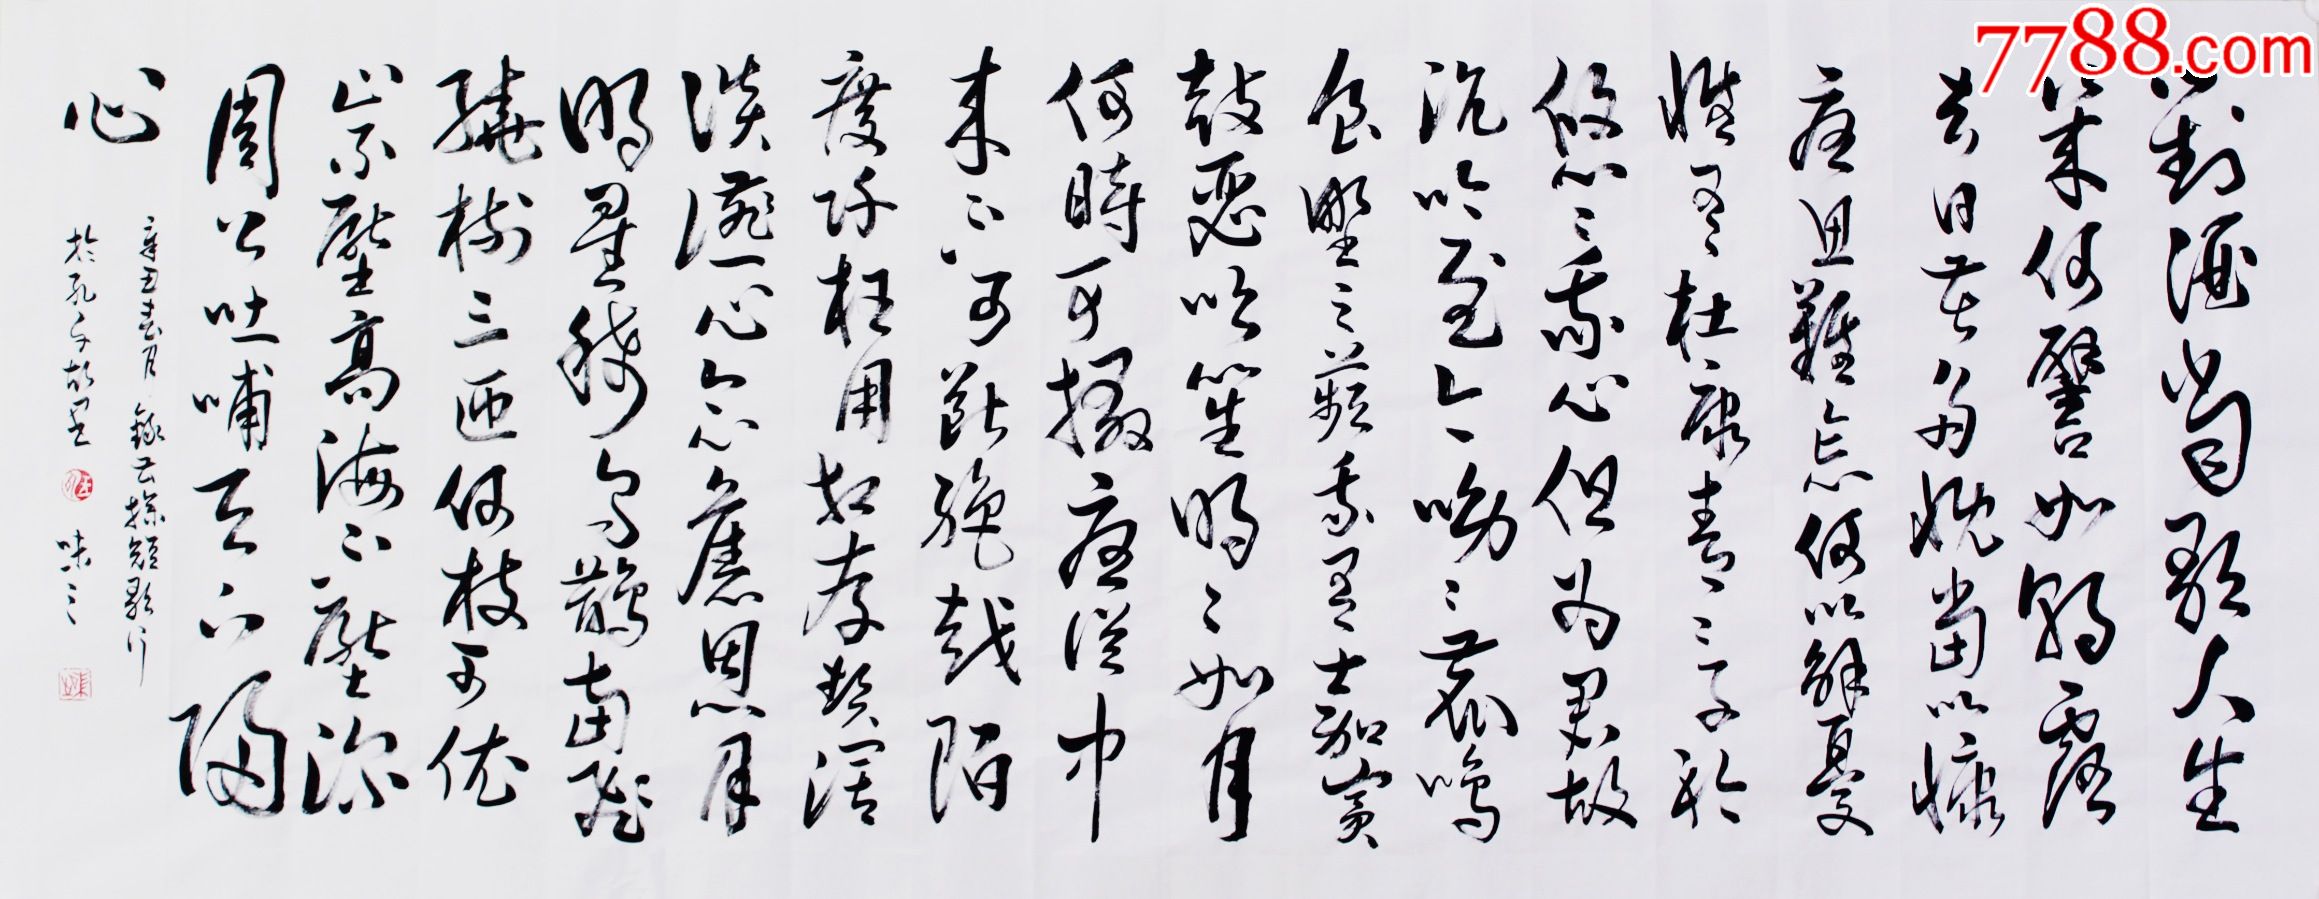 7788.com
對酒當歌人生
幾何譬如朝露
去日苦多慨當以慷
憂思難忘何以解憂
惟有杜康青〻子衿
悠〻我心但為君故
沉吟至今呦〻鹿鳴
食野之蘋我有嘉賓
鼓瑟吹笙明〻如月
何時可掇憂從中
來不可斷絕越陌
度阡枉用相存契闊
談讌心念舊恩月
明星稀烏鵲南飛
繞樹三匝何枝可依
山不厭高海不厭深
周公吐哺天下歸
心
辛丑春月錄曹操短歌行
於孔子故里 味之